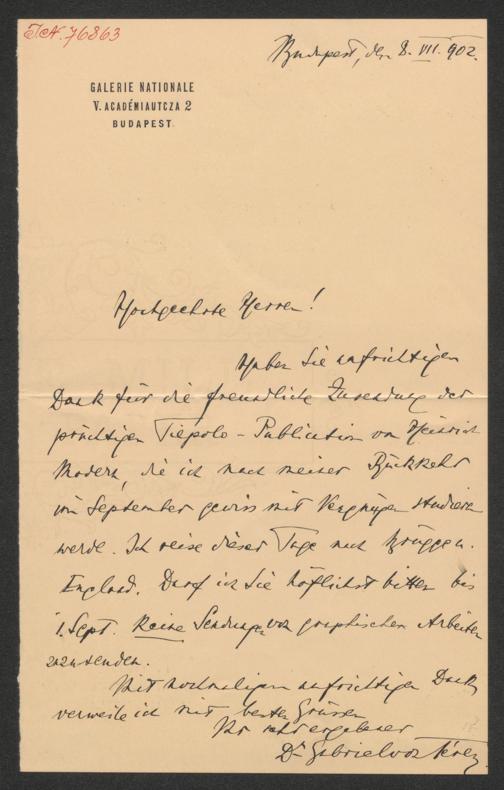 I.N. 76863
Budapest, den 8. VII. 902.
GALERIE NATIONALE
V. ACADÉMIAUTCZA 2
BUDAPEST.
Hochgeehrte Herren!
Haben Sie aufrichtigen
Dank für die freundliche Zusendung der
prächtigen Tiepolo-Publication von Heinrich
Modern, die ich nach meiner Rückkehr
im September gewiss mit Vergnügen studieren
werde. Ich reise dieser Tage nach Brügge u.
England. Darf ich Sie höflichst bitten bis
1. Sept. keine Sendungen von graphischen Arbeiten
zuzusenden.
Mit nochmaligem aufrichtigen Dank
verweile ich mit besten Grüssen
Ihr sehr ergebener
Dr Gabriel von Térey